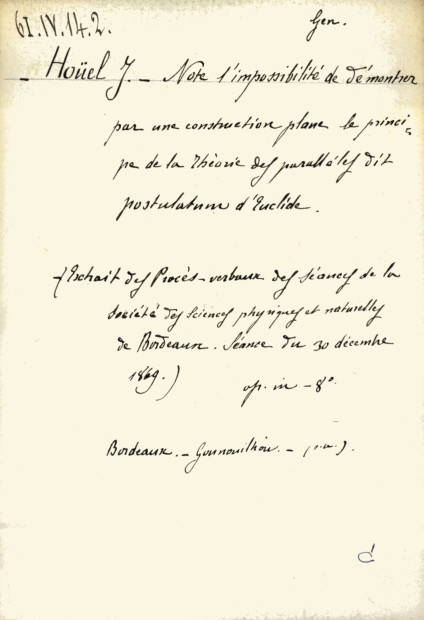 61.IV.14.2.
Gen.
Hoüel J. – Note l'impossibilité de démontrer
par une construction plane le princi-
pe de la théorie des parallèles dit
postulatum d'Euclide.
(Extrait des Procès-verbaux des séances de la
Société des sciences physiques et naturelles
de Bordeaux. Séance du 30 décembre
1869.)
op. in – 8°.
Bordeaux. – Gounouilhou. – (s.a.).